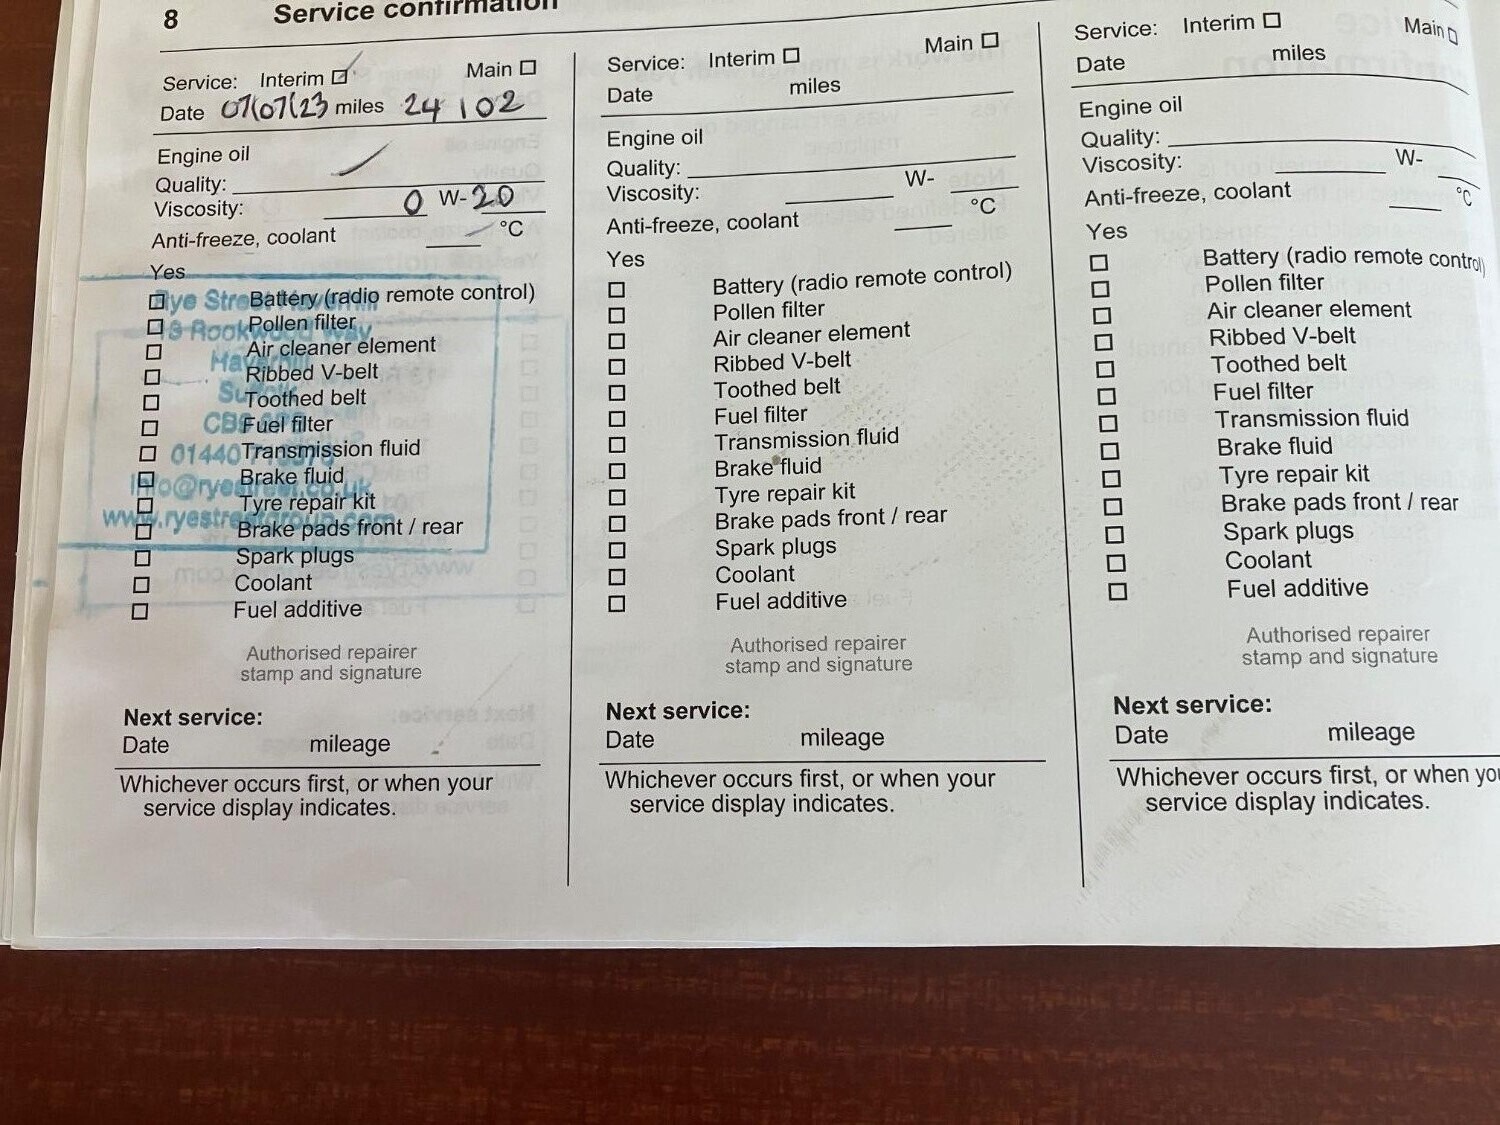 8 Service confirmation
Service: Interim Main
Date 07/07/23 miles 24102
Engine oil
Quality:
Viscosity: 0 W-20
Anti-freeze, coolant °C
Yes
Battery (radio remote control)
Pollen filter
Air cleaner element
Ribbed V-belt
Toothed belt
Fuel filter
Transmission fluid
Brake fluid
Tyre repair kit
Brake pads front / rear
Spark plugs
Coolant
Fuel additive
Rye Street Haverhill
Rookwood Way
Haverhill
Suffolk
CB9
01440
info@ryestreet.co.uk
www.ryestreetgroup.com
Authorised repairer
stamp and signature
Next service:
Date mileage
Whichever occurs first, or when your
service display indicates.
Service: Interim Main
Date miles
Engine oil
Quality:
Viscosity: W-
Anti-freeze, coolant °C
Yes
Battery (radio remote control)
Pollen filter
Air cleaner element
Ribbed V-belt
Toothed belt
Fuel filter
Transmission fluid
Brake fluid
Tyre repair kit
Brake pads front / rear
Spark plugs
Coolant
Fuel additive
Authorised repairer
stamp and signature
Next service:
Date mileage
Whichever occurs first, or when your
service display indicates.
Service: Interim Main
Date miles
Engine oil
Quality:
Viscosity: W-
Anti-freeze, coolant °C
Yes
Battery (radio remote control)
Pollen filter
Air cleaner element
Ribbed V-belt
Toothed belt
Fuel filter
Transmission fluid
Brake fluid
Tyre repair kit
Brake pads front / rear
Spark plugs
Coolant
Fuel additive
Authorised repairer
stamp and signature
Next service:
Date mileage
Whichever occurs first, or when you
service display indicates.